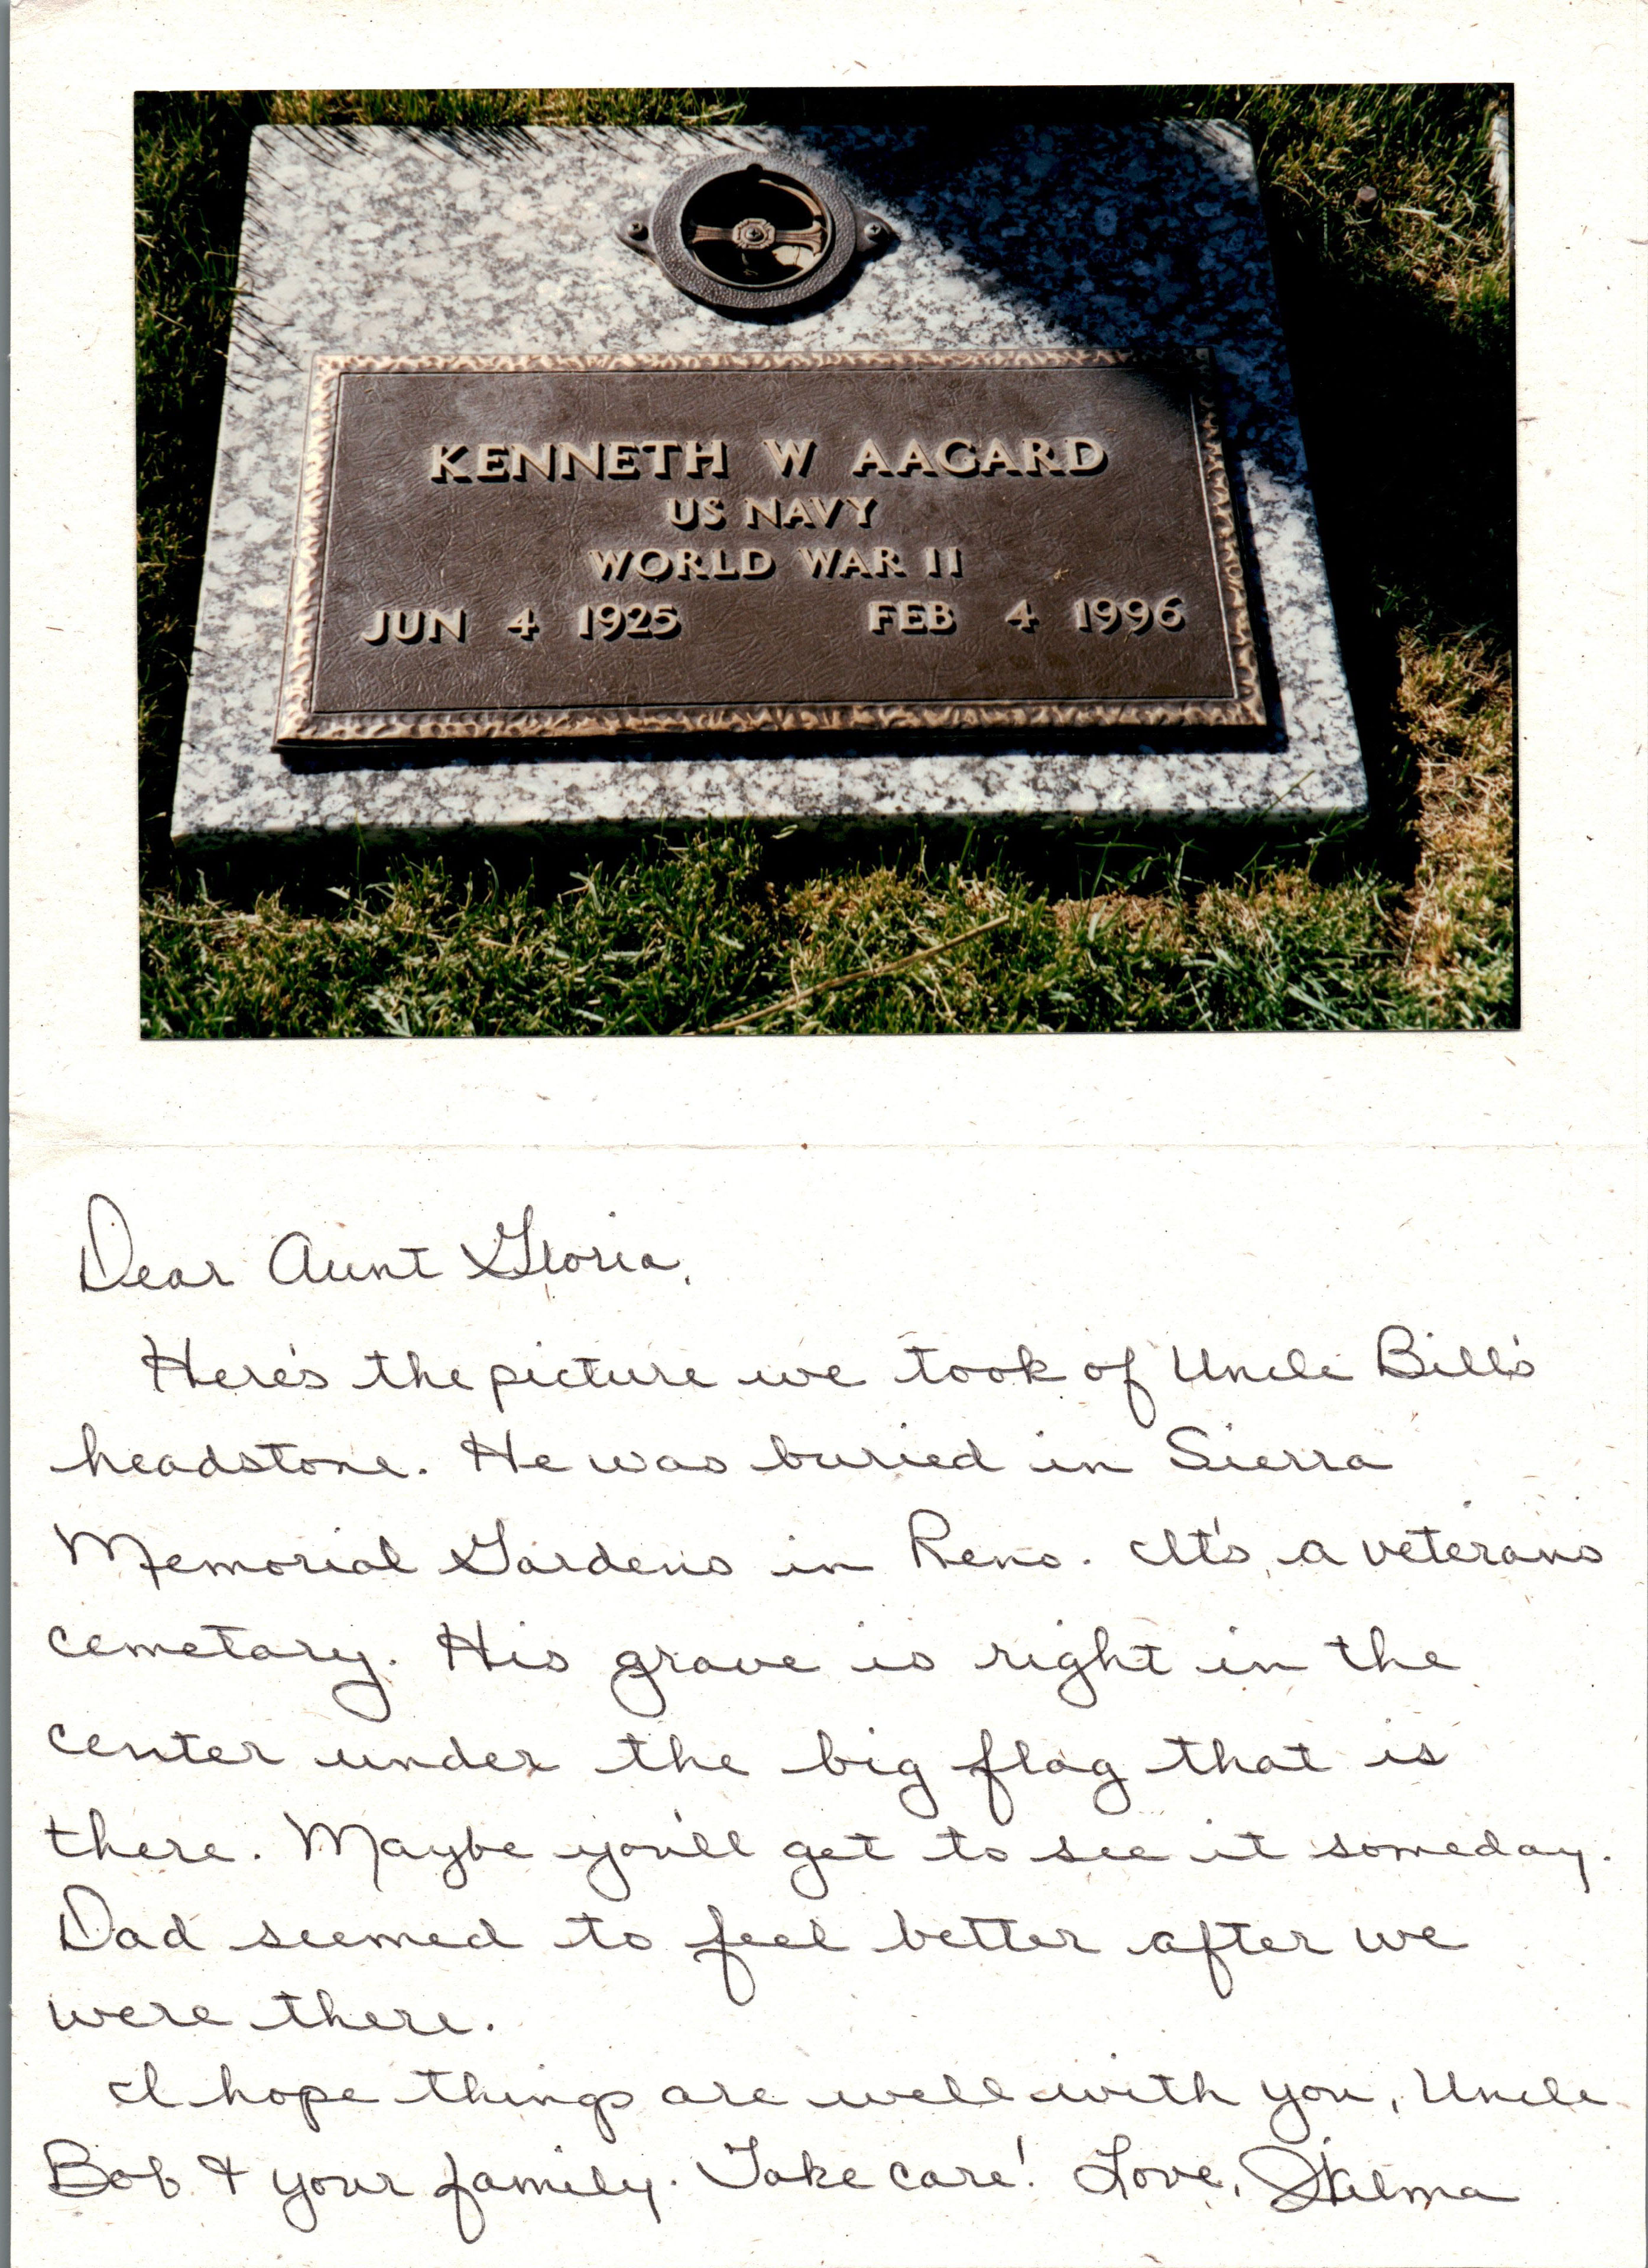 KENNETH W AAGARD
US NAVY
WORLD WAR II
JUN 4 1925 FEB 4 1996
Dear Aunt Gloria,
Here's the picture we took of Uncle Bill's
headstone. He was buried in Sierra
Memorial Gardens in Reno. It's a veterans
cemetary. His grave is right in the
center under the big flag that is
there. Maybe you'll get to see it someday.
Dad seemed to feel better after we
were there.
I hope things are well with you, Uncle
Bob & your family. Take care! Love,